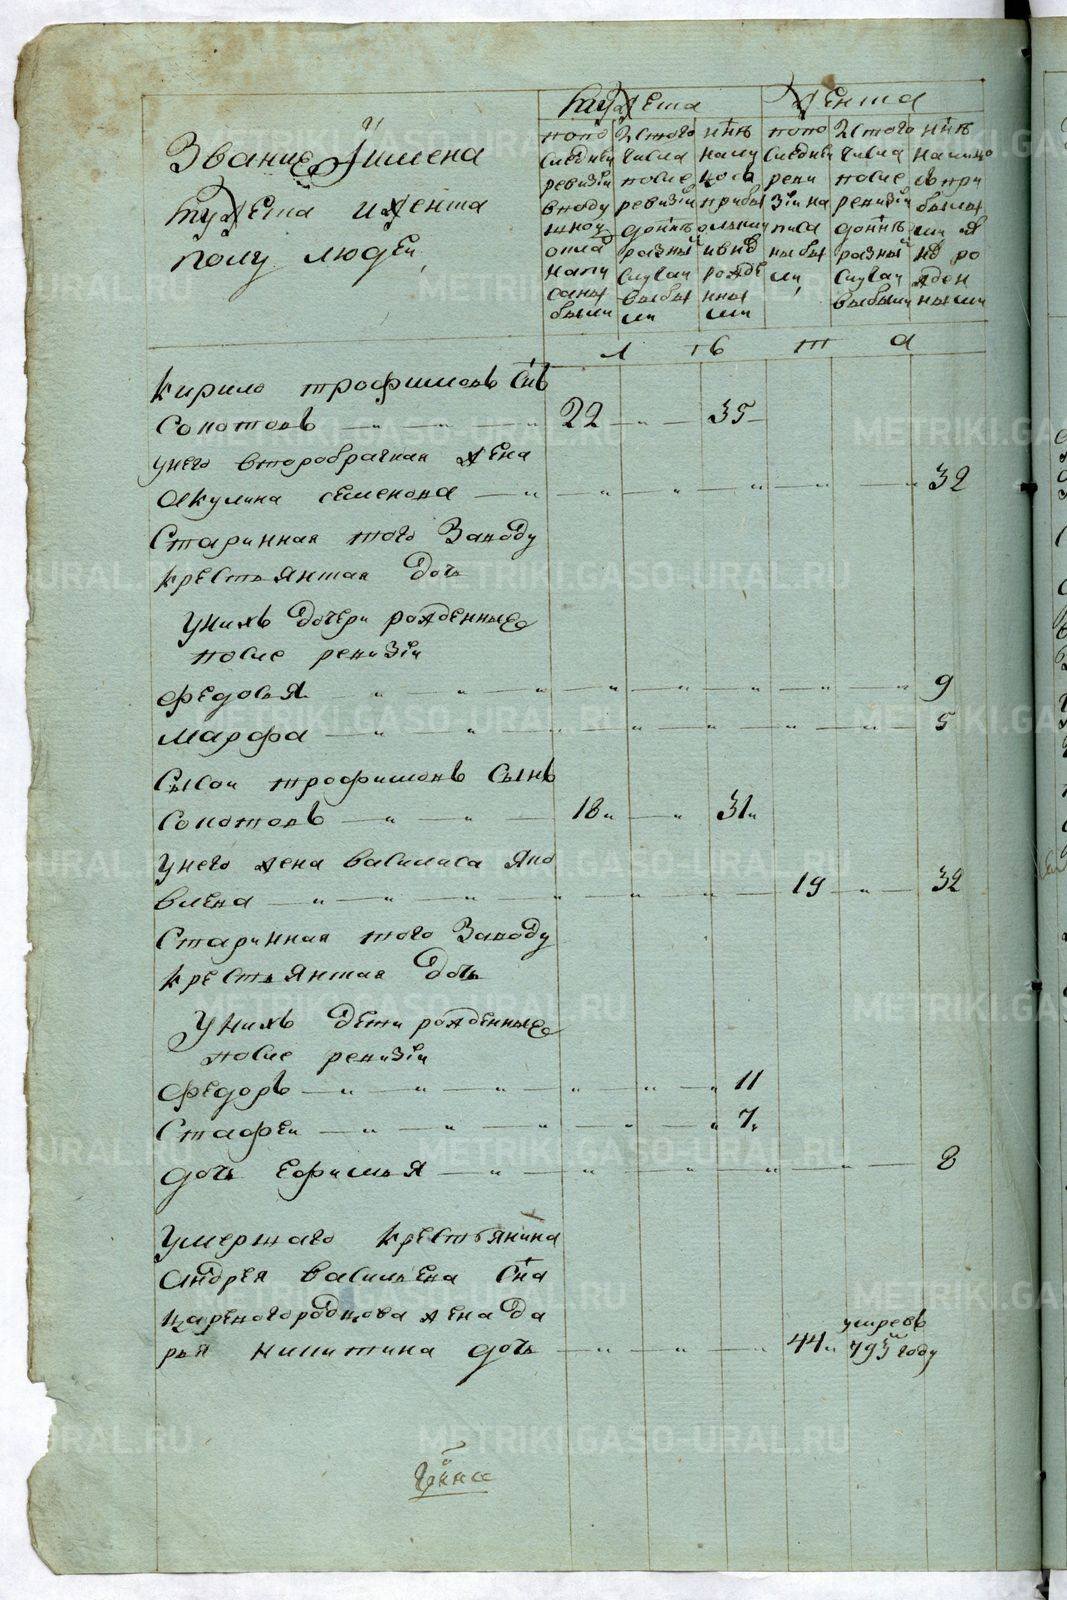 Звание Иимена
мужеска иженска
полу людей
мужеска
женска
попо
следней
ревизии
вподу
шной
окла
напи
саны
были
Исього
числа
после
ревизии
донынѣ
разный
случаи
выбы
ли
нынѣ
на лицо
прибы
лыми
ивнов
рожде
нны
ми
попо
следней
реви
зии на
писа
ны бы
ли
Исього
числа
после
ревизии
донынѣ
разный
случаи
выбыли
нынѣ
на лицо
с при
былы
ми и
но ро
жден
ными
лѣта
кирило трофимовъ Снъ
Сокотовъ 22 35
унего второбрачная жена
Акулина семенова 32
Старинная того Заводу
крестьянская дочь
Унихъ дочери рожденные
после ревизии
Федосья 9
Марфа 5
Сысои трофимовъ Сынъ
Сокотовъ 18 31
Унего жена василиса Яко
влева 19 32
Старинная того Заводу
крестьянская дочь
Унихъ дети рожденные
после ревизии
Федоръ 11
Стафеи 7
дочь Ефимья 8
Умершаго крестьянина
Андрея васильева Сна
царегородцова жена Да
рья никитина дочь 44 умре въ 795м году
METRIKI.GASO-URAL.RU